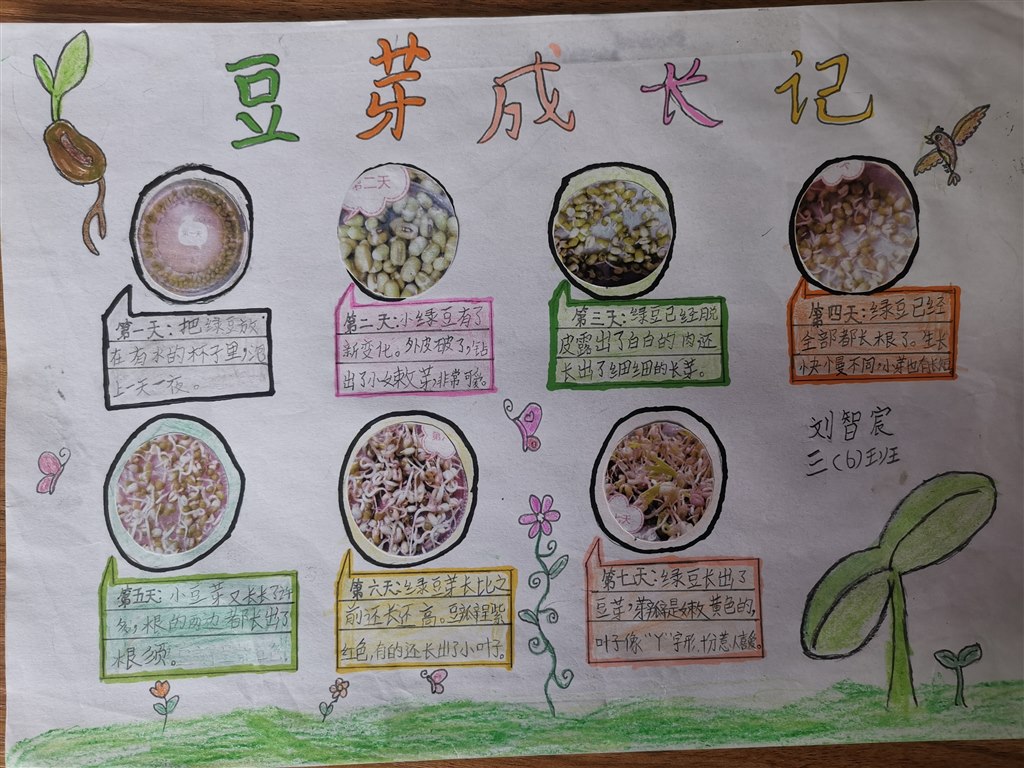 豆芽成长记
第二天
第一天:把绿豆放
在有水的杯子里,泡
上一天一夜。
第二天:小绿豆有了
新变化。外皮破了,钻
出了小嫩芽,非常可爱。
第三天:绿豆已经脱
皮露出了白白的肉还
长出了细细的长芽。
第四天:绿豆已经
全部都长根了。生长
快慢不同,小芽也有长短
刘智宸
三(6)班
第五天:小豆芽又长长了许
多,根的两边都长出了
根须。
第六天:绿豆芽长比之
前还长还高。豆瓣呈紫
红色,有的还长出了小叶子。
第七天:绿豆长出了
豆芽,芽瓣是嫩黄色的,
叶子像“丫”字形,十分惹人喜爱。